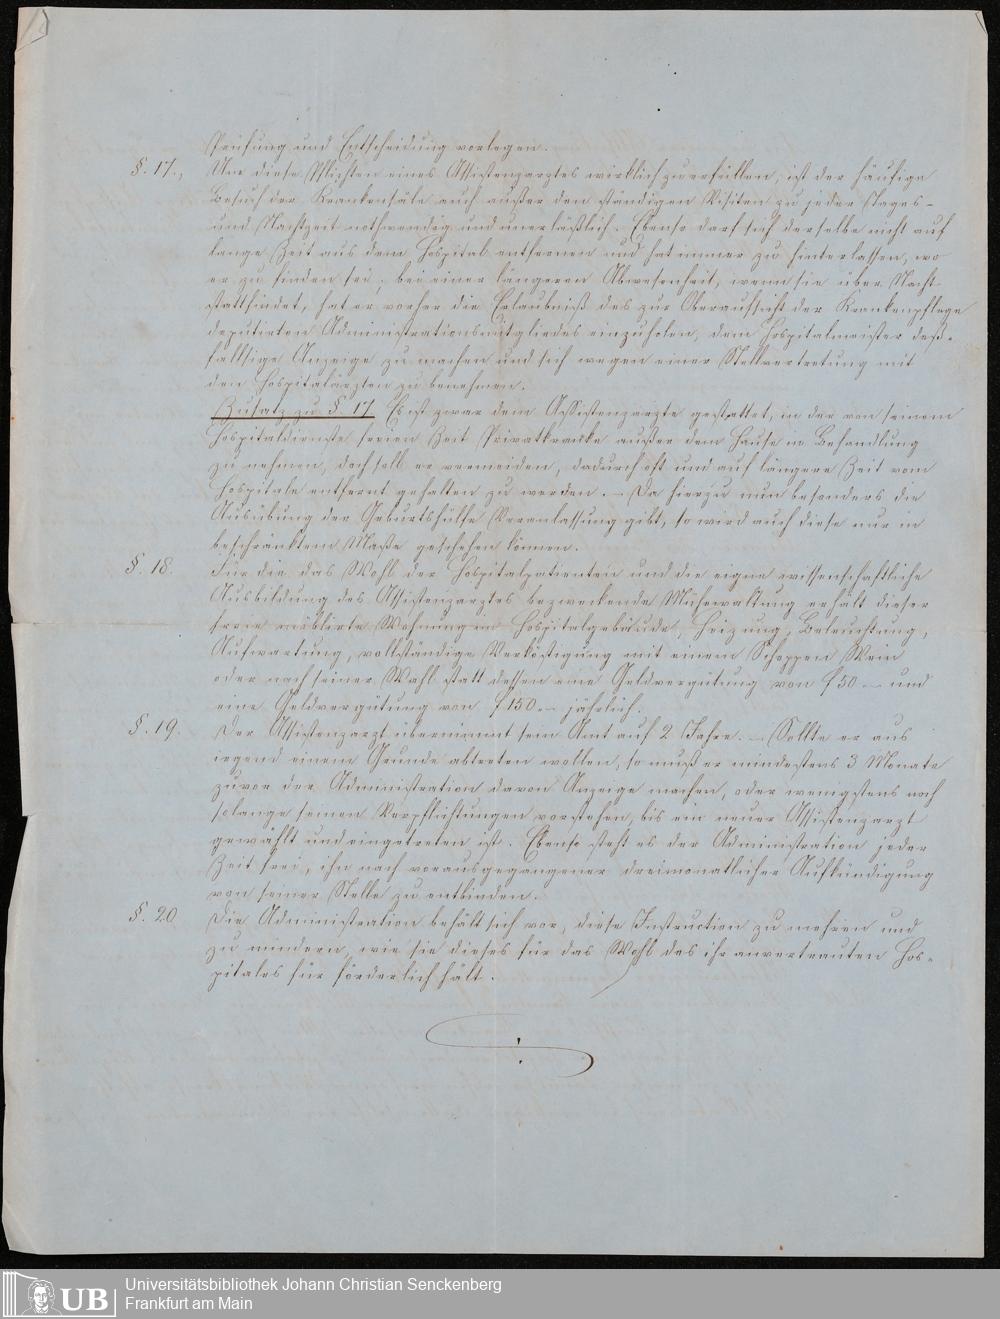 Prüfung und Entscheidung vorlegen.
§. 17., Um diese Pflichten eines Assistenzarztes wirklich zu erfüllen, ist der häufige
Besuch der Krankensäle auch außer den ständigen Visiten zu jeder Tages-
und Nachtzeit nothwendig und unerläßlich. Ebenso darf sich derselbe nicht auf
lange Zeit aus dem Hospital entfernen und hat immer zu hinterlassen, wo
er zu finden sei. bei einer längeren Abwesenheit, wenn sie über Nacht
stattfindet, hat er vorher die Erlaubniß des zur Oberaufsicht der Krankenpflege
deputirten Administrationsmitgliedes einzuholen, dem Hospitalmeister deß-
fallsige Anzeige zu machen und sich wegen einer Stellvertretung mit
den Hospitalärzten zu benehmen.
Zusatz zu §. 17 Es ist zwar dem Assistenzarzte gestattet, in der von seinem
Hospitaldienste freien Zeit Privatkranke außer dem Hause in Behandlung
zu nehmen, doch soll er vermeiden, dadurch oft und auf längere Zeit vom
Hospitale entfernt gehalten zu werden. – Da hierzu nun besonders die
Ausübung der Geburtshülfe Veranlassung gibt, so wird auch diese nur in
beschränktem Maße geschehen können.
§. 18. Für die das Wohl der Hospitalpatienten und die eigne wissenschaftliche
Ausbildung des Assistenzarztes bezweckende Mühewaltung erhält dieser
freie möblirte Wohnung im Hospitalgebäude, Heizung, Beleuchtung,
Aufwartung, vollständige Verköstigung mit einem Schoppen Wein
oder nach seiner Wahl statt dessen eine Geldvergütung von f 50 – und
eine Geldvergütung von f 150.– jährlich.
§. 19. Der Assistenzarzt übernimmt sein Amt auf 2 Jahre. – Sollte er aus
irgend einem Grunde abtreten wollen, so muß er mindestens 3 Monate
zuvor der Administration davon Anzeige machen, oder wenigstens noch
solange seinen Verpflichtungen vorstehen, bis ein neuer Assistenzarzt
gewählt und eingetreten ist. Ebenso steht es der Administration jeder
Zeit frei, ihn nach vorausgegangener dreimonatlicher Aufkündigung
von seiner Stelle zu entbinden.
§. 20. Die Administration behält sich vor, diese Instruction zu mehren und
zu mindern, wie sie dieses für das Wohl des ihr anvertrauten Hos-
pitales für förderlich hält.
UB Universitätsbibliothek Johann Christian Senckenberg
Frankfurt am Main